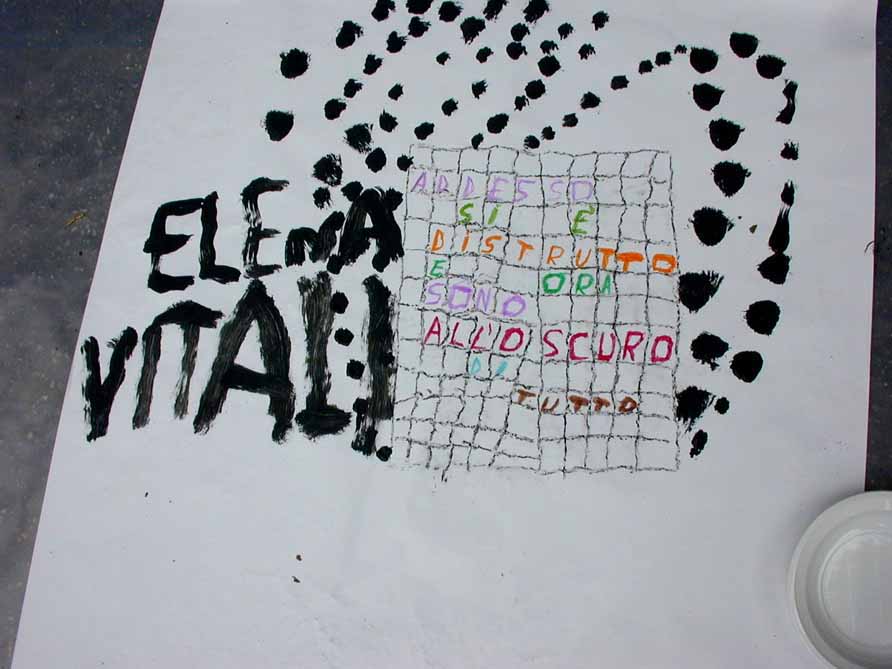 ELEMA
VITALI
ADDESSO
SI È
DISTRUTTO
E ORA
SONO
ALL'OSCURO
DI
TUTTO